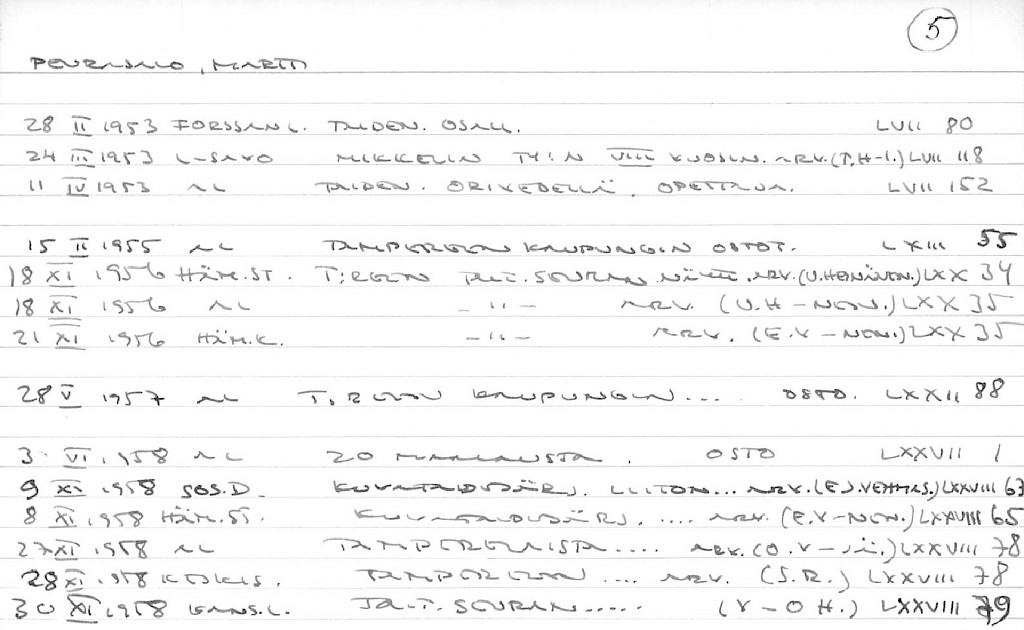 5
PEURASALO, MARTTI
28 II 1953 FORSSAN L. TAIDEN. OSALL. LVII 80
24 III 1953 L-SAVO MIKKELIN TM:N VIII VUOSIN. ARV. (T.H-I.) LVII 118
11 IV 1953 AL TAIDEN. ORIVEDELLÄ, OPETTAJA. LVII 152
15 II 1955 AL TAMPEREEN KAUPUNGIN OSTOT. LXIII 55
18 XI 1956 HÄM. ST. T:REEN TAIT. SEURAN NÄYTT. ARV. (U. HEINÄVEN.) LXX 34
18 XI 1956 AL -"- ARV. (U.H-NEN.) LXX 35
21 XI 1956 HÄM. K. -"- ARV. (E.V-NEN.) LXX 35
28 V 1957 AL T:REEN KAUPUNGIN.... OSTO. LXXII 88
3 VI 1958 AL 20 MAALAUSTA. OSTO LXXVII 1
9 XI 1958 SOS.D. KUVATAIDEJÄRJ. LIITON... ARV. (E.J. VEHMAS.) LXXVIII 63
8 XI 1958 HÄM. ST. KUVATAIDEJÄRJ..... ARV. (E.V-NEN.) LXXVIII 65
27 XI 1958 AL TAMPERELAISTA.... ARV. (O.V-JÄ.) LXXVIII 78
28 XI 1958 KESKIS. TAMPEREEN .... ARV. (S.R.) LXXVIII 78
30 XI 1958 KANS.L. TAIT. SEURAN..... (V-O H.) LXXVIII 79